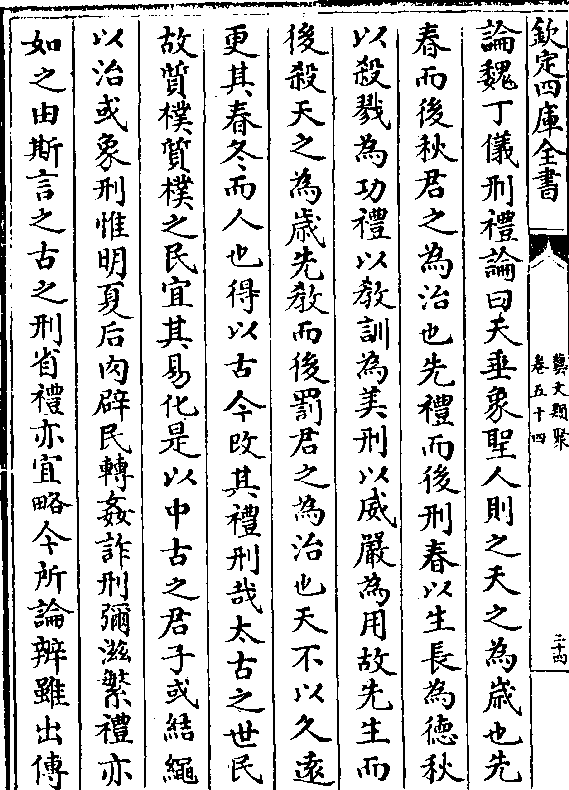 欽定四庫全書
藝文類聚
卷五十四
三十四
論魏丁儀刑禮論曰夫垂象聖人則之天之為歳也先
春而後秋君之為治也先禮而後刑春以生長為德秋
以殺戮為功禮以教訓為美刑以威嚴為用故先生而
後殺天之為歳先教而後罰君之為治也天不以久逺
更其春冬而人也得以古今改其禮刑哉太古之世民
故質樸質樸之民宜其易化是以中古之君子或結繩
以治或象刑惟明夏后肉辟民轉姦詐刑彌滋繁禮亦
如之由斯言之古之刑省禮亦宜略今所論辨雖出傳